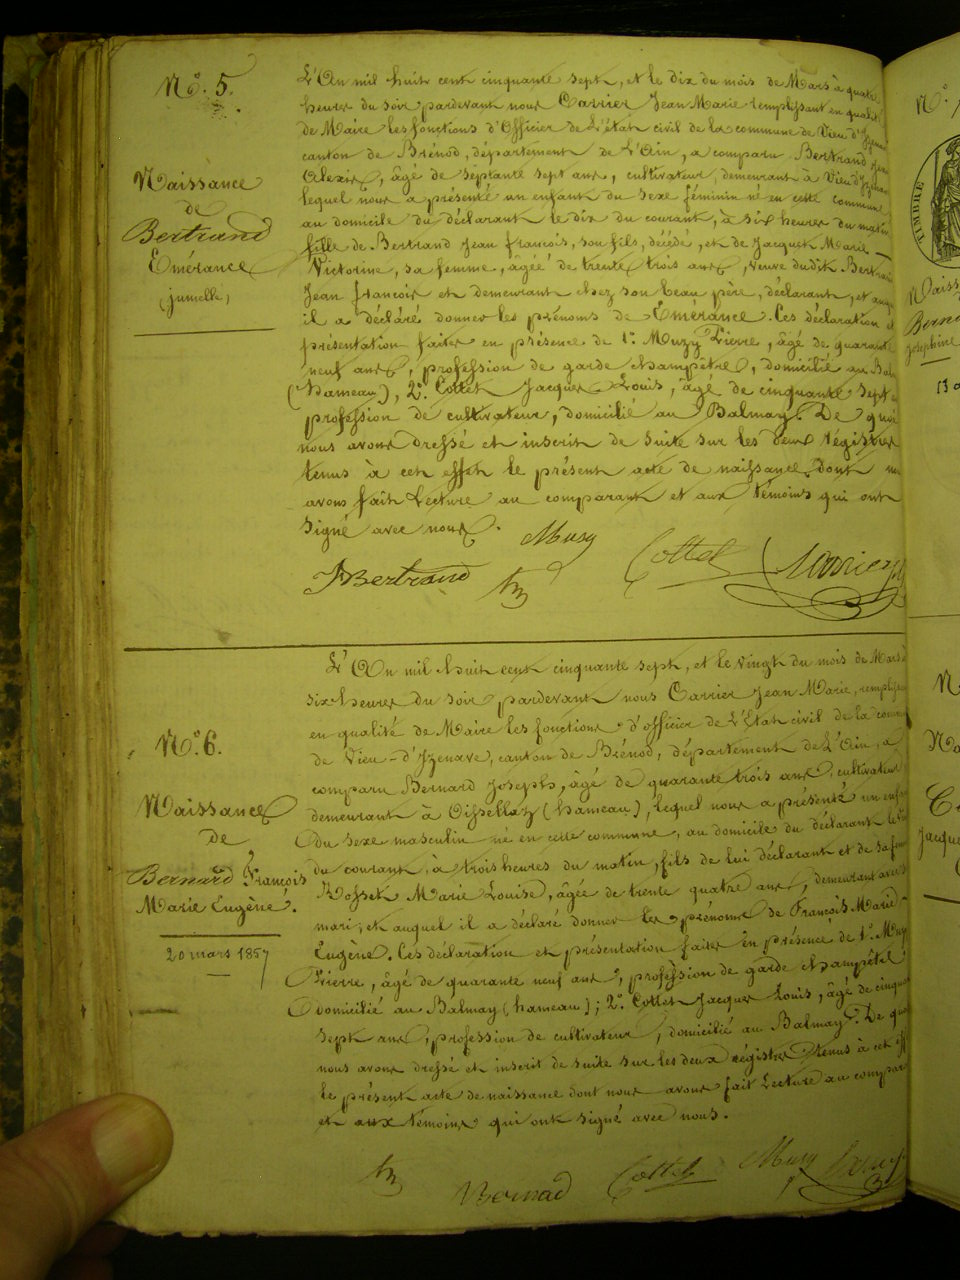 N.° 5.
Naissance
de
Bertrand
Emérance
(jumelle)
L'An mil huit cent cinquante sept, et le dix du mois de Mars à quatre
heures du soir pardevant nous Carrier Jean Marie remplissant en qualité
de Maire les fonctions d'Officier de L'état civil de la commune de Vieu d'Izenave
canton de Brénod, département de L'Ain, a comparu Bertrand Jean
Alexis, âgé de septante sept ans, cultivateur, demeurant à Vieu d'Izenave
lequel nous a présenté un enfant du sexe féminin né en cette commune
au domicile du déclarant le dix du courant, à six heures du matin
fille de Bertrand Jean françois, son fils, décédé, et de Jacquet Marie
Victorine, sa femme, âgée de trente trois ans, veuve dudit Bertrand
Jean françois et demeurant chez son beau père, déclarant, et auquel
il a déclaré donner les prénoms de Emérance. Ces déclaration et
présentation faites en présence de 1.° Muzy Pierre, âgé de quarante
neuf ans, profession de garde champêtre, domicilié au Balmay
(hameau), 2.° Cottet Jacques Louis, âgé de cinquante sept
profession de cultivateur, domicilié au Balmay. De quoi
nous avons dressé et inscrit de suite sur les deux régistres
tenus à cet effet le présent acte de naissance dont nous
avons fait Lecture au comparant et aux témoins qui ont
signé avec nous.
Musy
Cottet Carrier
JBertrand
N.° 6.
Naissance
De
Bernard François
Marie Eugène.
20 mars 1857
L'An mil huit cent cinquante sept, et le vingt du mois de Mars à
six heures du soir pardevant nous Carrier Jean Marie, remplissant
en qualité de Maire les fonctions d'officier de L'Etat civil de la commune
de Vieu-d'Izenave, canton de Brénod, département de L'Ain, a
comparu Bernard Joseph, âgé de quarante trois ans, cultivateur
demeurant à Oisselaz (hameau), lequel nous a présenté un enfant
du sexe masculin né en cette commune, au domicile du déclarant le
du courant, à trois heures du matin, fils de lui déclarant et de sa femme
Rosset Marie Louise, âgée de trente quatre ans, demeurant avec
mari, et auquel il a déclaré donner les prénoms de François Marie
Eugène. Ces déclaration et présentation faites en présence de 1.° Muzy
Pierre, âgé de quarante neuf ans, profession de garde champêtre
domicilié au Balmay (hameau); 2.° Cottet Jacques Louis, âgé de cinquante
sept ans, profession de cultivateur, domicilié au Balmay. De quoi
nous avons dressé et inscrit de suite sur les deux régistres tenus à cet effet
le présent acte de naissance dont nous avons fait Lecture au comparant
et aux témoins qui ont signé avec nous.
Bernad Cottet Musy
TIMBRE